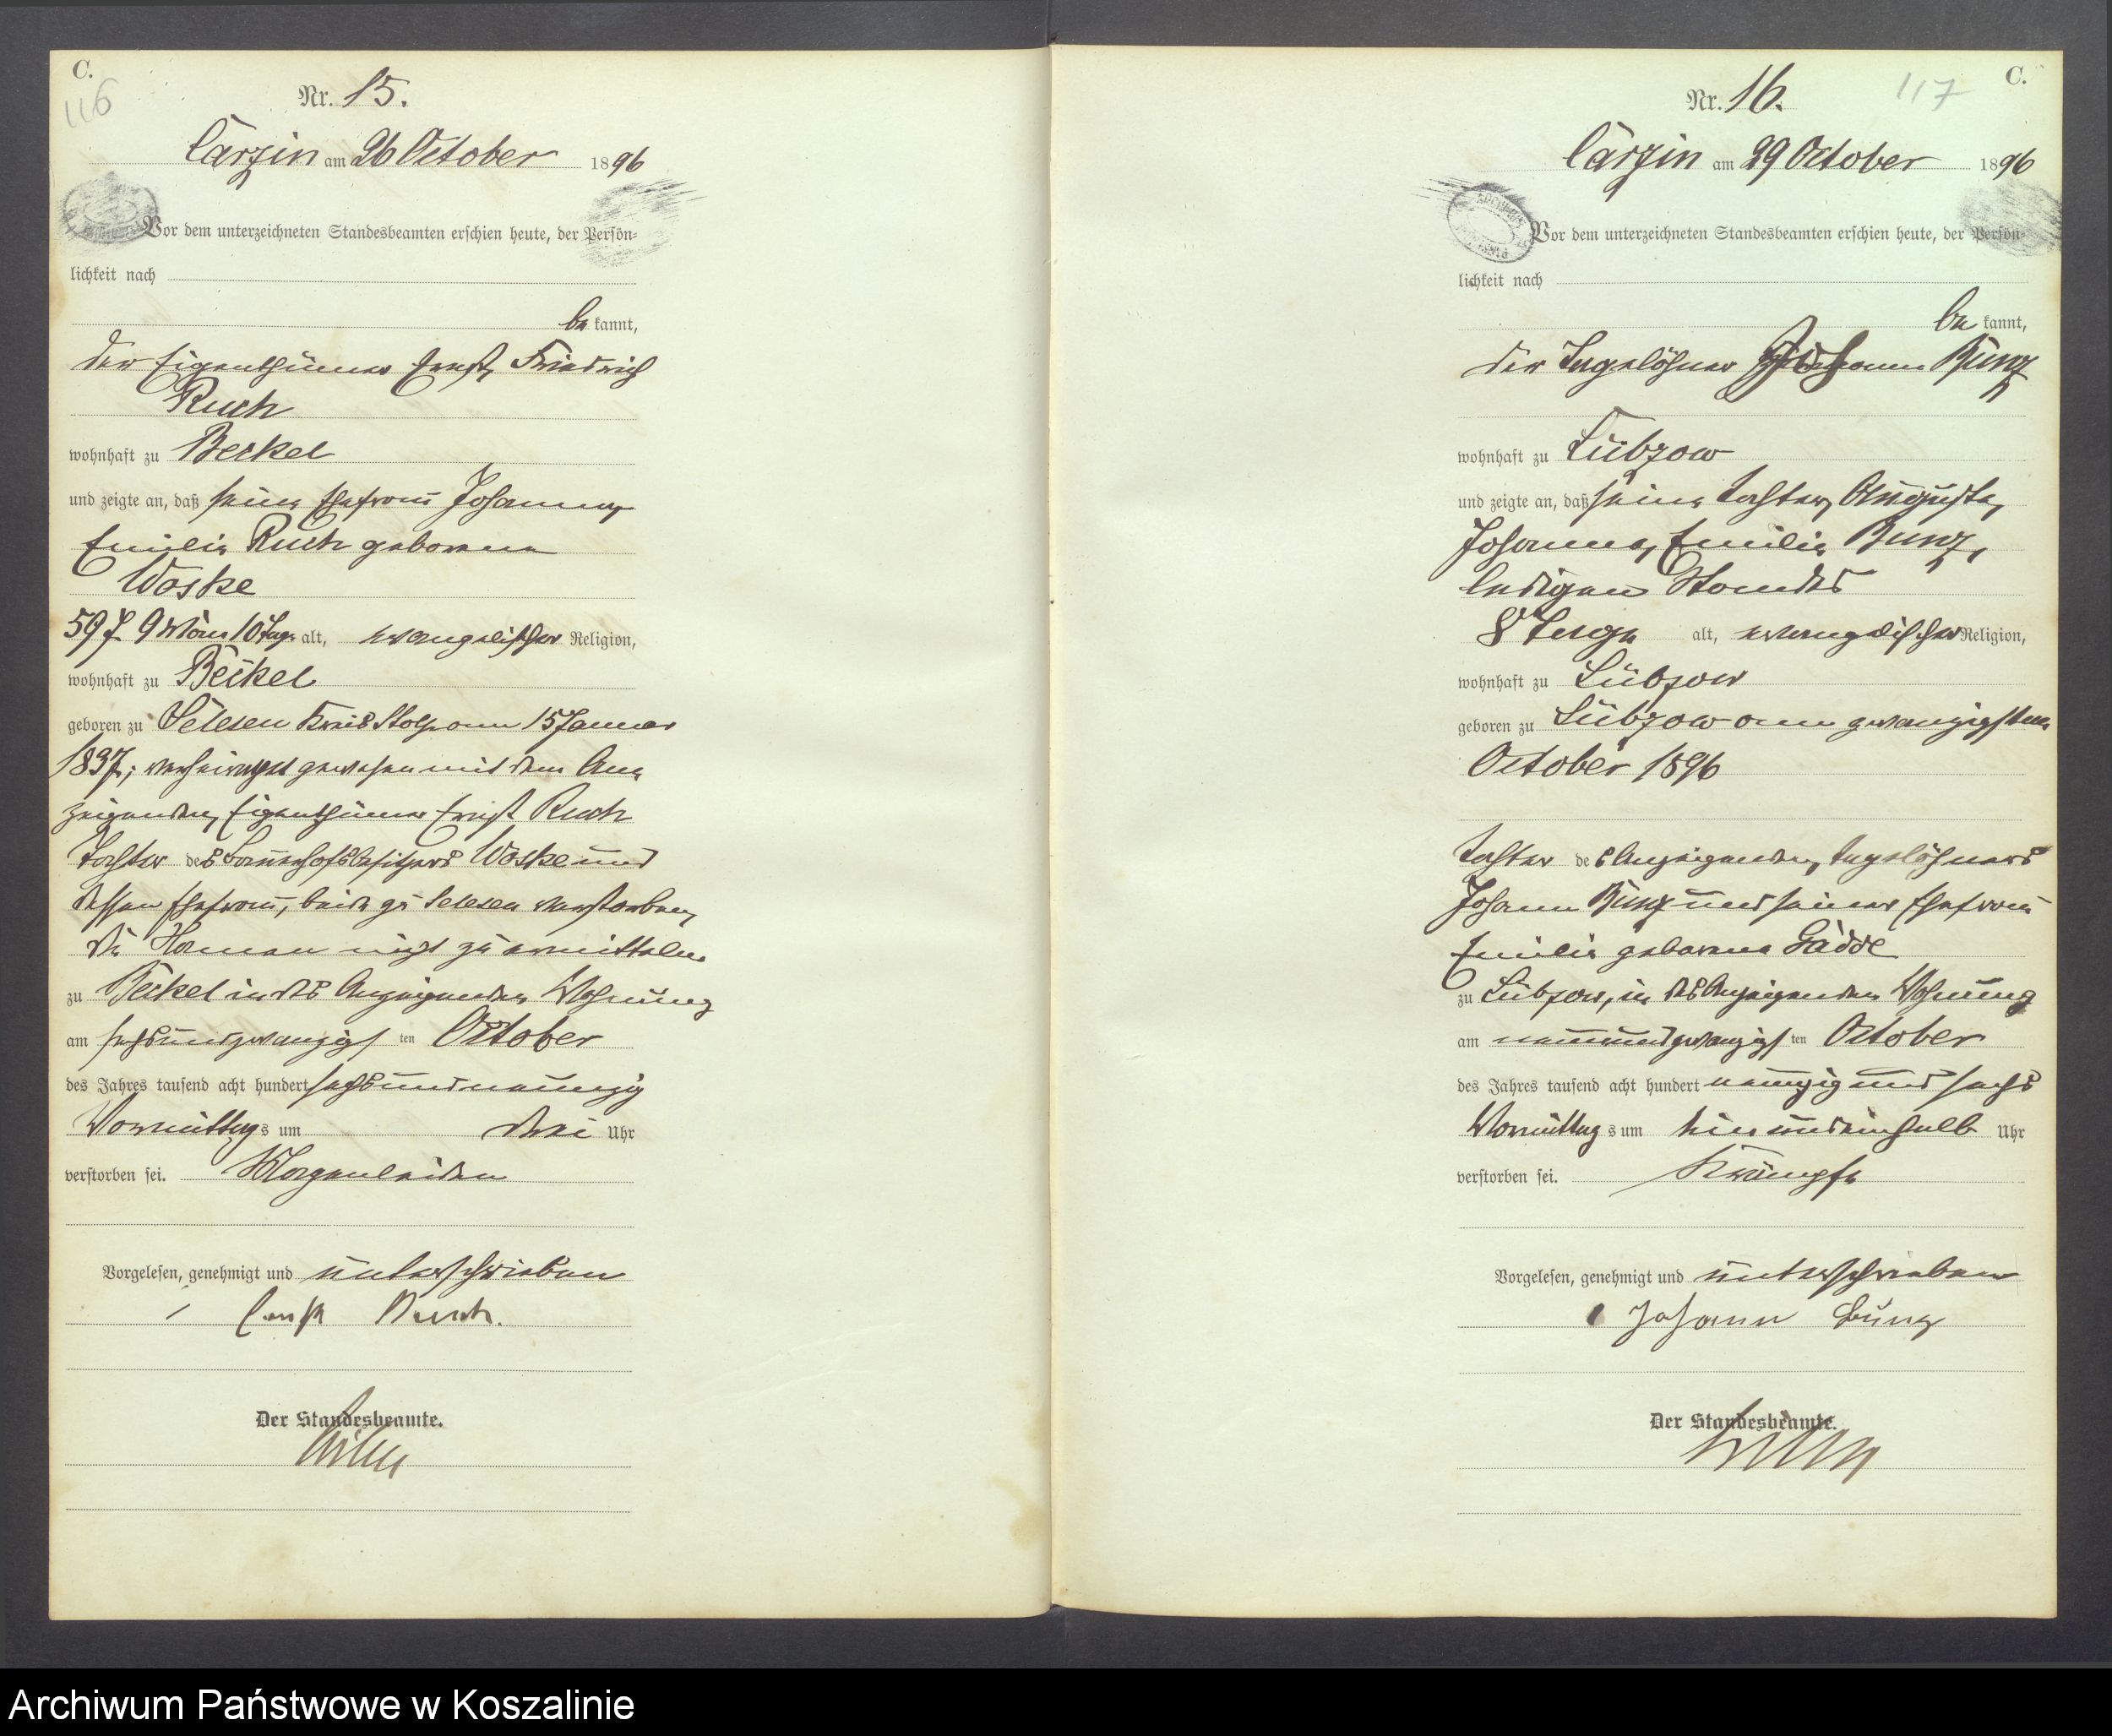 C.
116
Nr. 15.
Carzin am 26 October 1896
Vor dem unterzeichneten Standesbeamten erschien heute, der Persön-
lichkeit nach
be kannt,
der Eigenthümer Ernst, Friedrich
Ruch
wohnhaft zu Beckel
und zeigte an, daß seine Ehefrau Johanna,
Emilie Ruch geborene
Woske
59 J. 9 Mon 10 Tage alt, evangelischer Religion,
wohnhaft zu Beckel
geboren zu Selesen Kreis Stolp am 15 Januar
1837, verheirathet gewesen mit dem An-
zeigenden, Eigenthümer Ernst Ruch
Tochter des Bauerhofsbesitzers Woske und
dessen Ehefrau, beide zu Selesen verstorben,
die Namen nicht zu ermitteln
zu Beckel in des Anzeigenden Wohnung
am sechsundzwanzigs ten October
des Jahres tausend acht hundert sechsundneunzig
Vormittags um drei Uhr
verstorben sei. Magenleiden
Vorgelesen, genehmigt und unterschrieben
Ernst Ruch.
Der Standesbeamte.
117
C.
Nr. 16.
Carzin am 29 October 1896
Vor dem unterzeichneten Standesbeamten erschien heute, der Persön-
lichkeit nach
be kannt,
der Tagelöhner Johann Bunz
wohnhaft zu Lübzow
und zeigte an, daß seine Tochter, Auguste,
Johanna, Emilie Bunz,
ledigen Standes
8 Tage alt, evangelischer Religion,
wohnhaft zu Lübzow
geboren zu Lübzow am zwanzigsten
October 1896
Tochter des Anzeigenden, Tagelöhners
Johann Bunz und seiner Ehefrau
Emilie geborene Gadde
zu Lübzow, in des Anzeigenden Wohnung
am neunundzwanzigs ten October
des Jahres tausend acht hundert neunzig und sechs
Vormittags um ein und einhalb Uhr
verstorben sei. Krämpfe
Vorgelesen, genehmigt und unterschrieben
Johann Bunz
Der Standesbeamte.
Archiwum Państwowe w Koszalinie